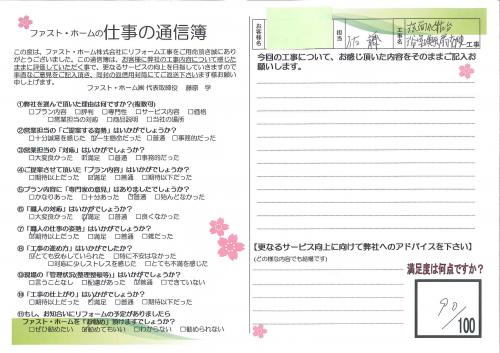 ファスト・ホームの仕事の通信簿
この度は、ファスト・ホーム株式会社にリフォーム工事をご用命頂き誠にあり
がとうございました。この通信簿は、お客様に弊社の工事内容について感じた
ままに評価していただく事で、更なるサービスの向上を目指していきますので
率直なご意見をご記入頂き、同封の返信用封筒にてご返送下さいます様お願い
申し上げます。
ファスト・ホーム㈱ 代表取締役 藤原 学
①弊社を選んで頂いた理由は何ですか?(複数可)
□プラン内容 □評判 □専門性 □サービス内容 □価格
□営業担当の対応 □商品説明 □当社の場所
②営業担当の「ご提案する姿勢」はいかがでしょうか?
□十分誠意を感じた □一生懸命だった □普通 □事務的だった
③営業担当の「対応」はいかがでしょうか?
□大変良かった □満足 □普通 □事務的だった
④ご提案させて頂いた「プラン内容」はいかがでしょうか?
□期待以上だった □満足 □普通 □期待以下だった
⑤プラン内容に「専門家の意見」はありましたでしょうか?
□かなりあった □十分あった □普通 □殆んどなかった
⑥「職人の対応」はいかがでしょうか?
□大変良かった □満足 □普通 □良くなかった
⑦「職人の仕事の姿勢」はいかがでしょうか?
□期待以上だった □満足 □普通 □雑だった
⑧「工事の進め方」はいかがでしたか?
□とても安心していられた □特に不安はなかった
□対応に少しストレスを感じた □とても不満を感じた
⑨現場の「管理状況(整理整頓等)」はいかがでしょうか?
□言うことなし □配慮があった □普通 □できていない
⑩「工事の仕上がり」はいかがでしょうか?
□期待以上だった □満足 □普通 □期待以下だった
⑪もし、お知合いにリフォームの予定がありましたら
ファスト・ホームを「お勧め」頂けますでしょうか?
□ぜひ勧めたい □勧めてもいい □わからない □勧められない
お客様名
担当
工事名
工事
今回の工事について、お感じ頂いた内容をそのままご記入お
願いします。
【更なるサービス向上に向けて弊社へのアドバイスを下さい】
(どの様な内容でも結構です)
満足度は何点ですか?
90
/100